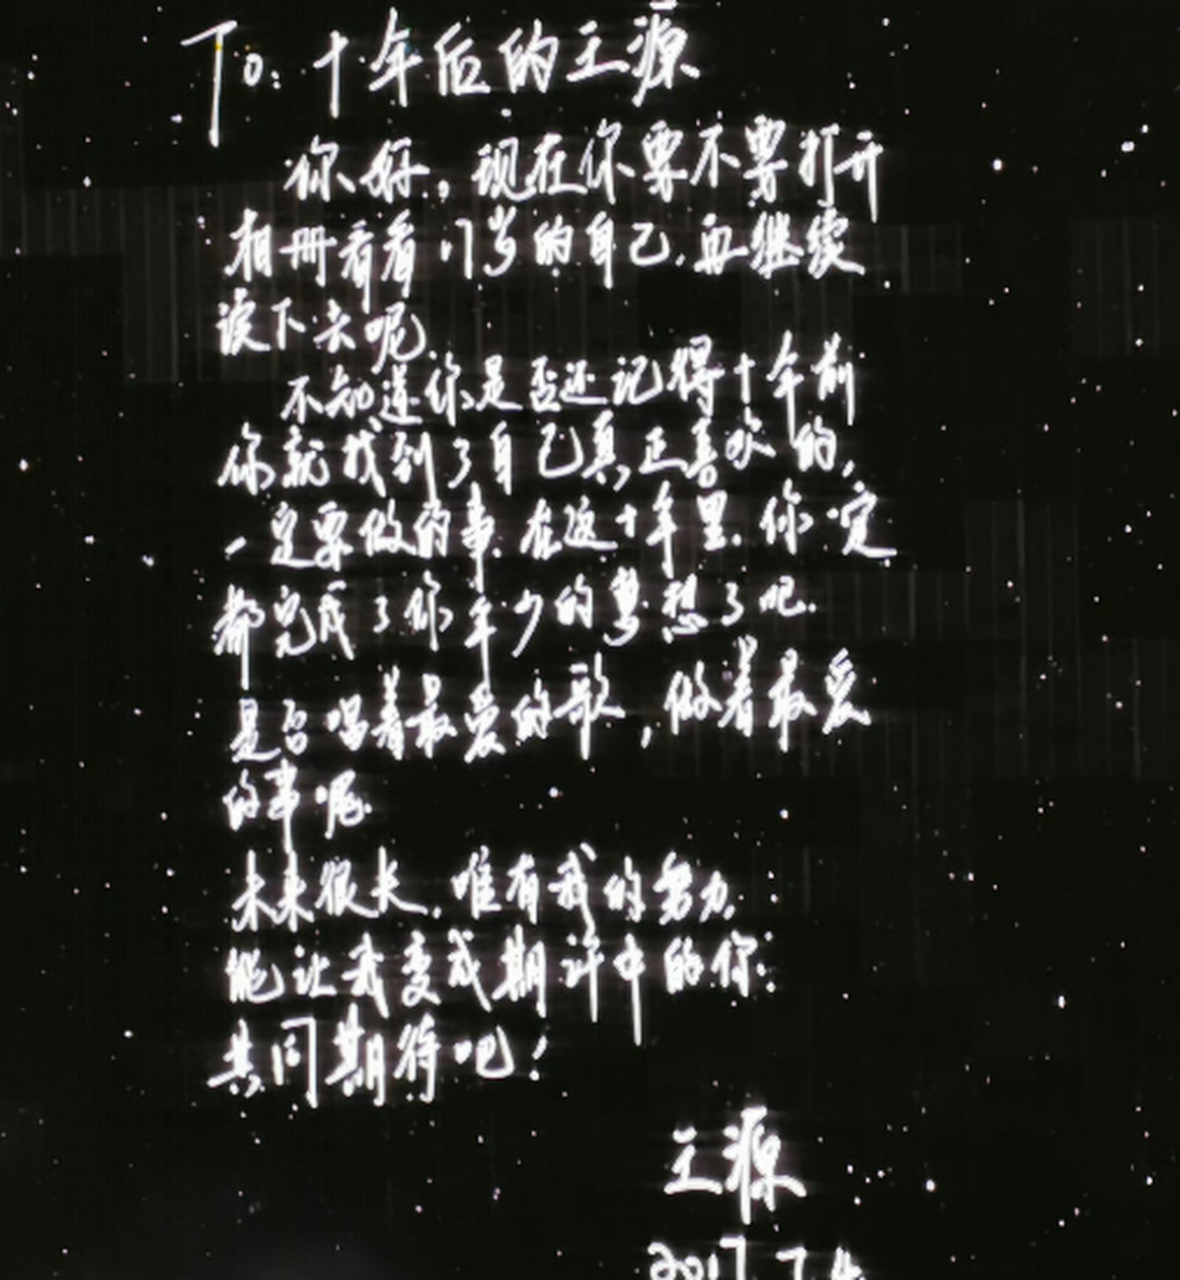 To: 十年后的王源
你好，现在你要不要打开
相册看看17岁的自己，再继续
读下去呢
不知道你是否还记得十年前
你就找到了自己真正喜欢的，
一定要做的事，在这十年里，你一定
都完成了你年少的梦想了吧.
是否唱着最爱的歌，做着最爱
的事呢.
未来很长，唯有我的努力
能让我变成期许中的你.
共同期待吧！
王源
2017.7.4